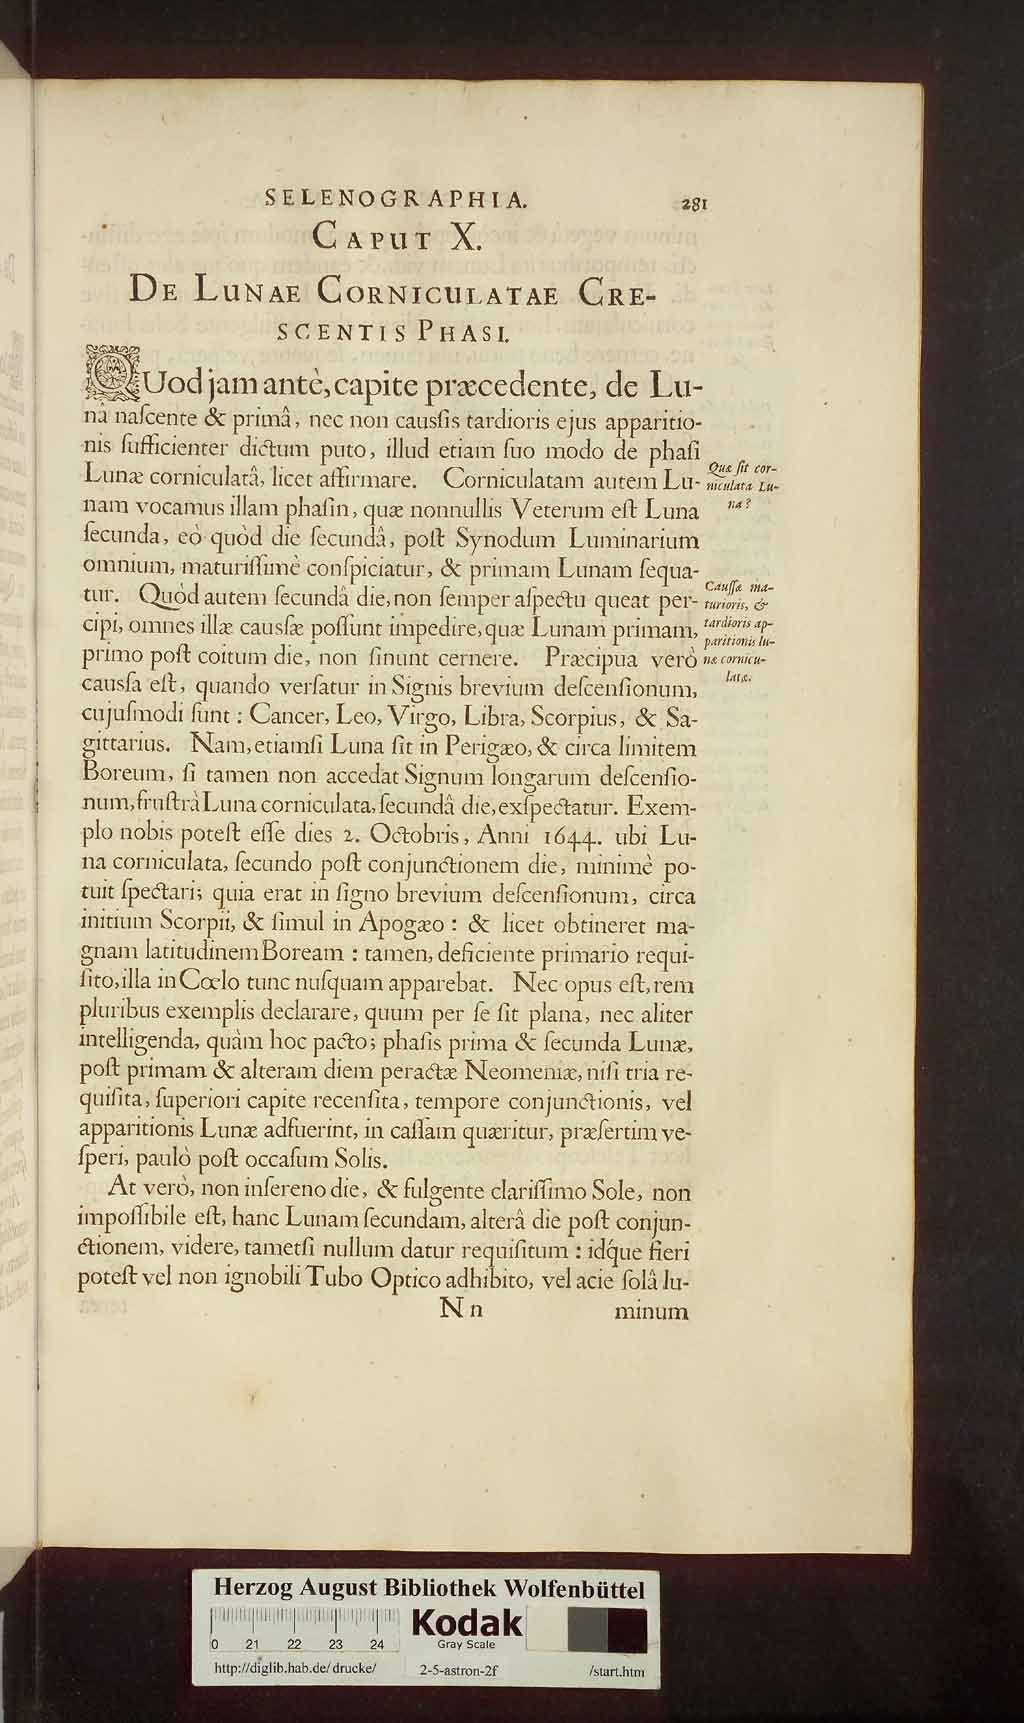 SELENOGRAPHIA. 281
CAPUT X.
DE LUNAE CORNICULATAE CRE-
SCENTIS PHASI.
QUod jam antè, capite præcedente, de Lu-
nâ naſcente & primâ, nec non causſis tardioris ejus apparitio-
nis ſufficienter dictum puto, illud etiam ſuo modo de phaſi
Lunæ corniculatâ, licet affirmare. Corniculatam autem Lu-
nam vocamus illam phaſin, quæ nonnullis Veterum eſt Luna
ſecunda, eò quòd die ſecundâ, poſt Synodum Luminarium
omnium, maturiſſimè conſpiciatur, & primam Lunam ſequa-
tur. Quòd autem ſecundâ die, non ſemper aſpectu queat per-
cipi, omnes illæ causſæ poſſunt impedire, quæ Lunam primam,
primo poſt coitum die, non ſinunt cernere. Præcipua verò
causſa eſt, quando verſatur in Signis brevium deſcenſionum,
cujuſmodi ſunt: Cancer, Leo, Virgo, Libra, Scorpius, & Sa-
gittarius. Nam, etiamſi Luna ſit in Perigæo, & circa limitem
Boreum, ſi tamen non accedat Signum longarum deſcenſio-
num, fruſtrà Luna corniculata, ſecundâ die, exſpectatur. Exem-
plo nobis poteſt eſſe dies 2. Octobris, Anni 1644. ubi Lu-
na corniculata, ſecundo poſt conjunctionem die, minimè po-
tuit ſpectari; quia erat in ſigno brevium deſcenſionum, circa
initium Scorpii, & ſimul in Apogæo: & licet obtineret ma-
gnam latitudinem Boream: tamen, deficiente primario requi-
ſito, illa in Cœlo tunc nuſquam apparebat. Nec opus eſt, rem
pluribus exemplis declarare, quum per ſe ſit plana, nec aliter
intelligenda, quàm hoc pacto; phaſis prima & ſecunda Lunæ,
poſt primam & alteram diem peractæ Neomeniæ, niſi tria re-
quiſita, ſuperiori capite recenſita, tempore conjunctionis, vel
apparitionis Lunæ adfuerint, in caſſam quæritur, præſertim ve-
ſperi, paulò poſt occaſum Solis.
At verò, non inſereno die, & fulgente clariſſimo Sole, non
impoſſibile eſt, hanc Lunam ſecundam, alterâ die poſt conjun-
ctionem, videre, tametſi nullum datur requiſitum: idq́ue fieri
poteſt vel non ignobili Tubo Optico adhibito, vel acie ſolâ lu-
Nn minum
Quæ ſit cor-
niculata Lu-
na?
Cauſſæ ma-
turioris, &
tardioris ap-
paritionis lu-
næ cornicu-
latæ.
Herzog August Bibliothek Wolfenbüttel
Kodak
Gray Scale
0 21 22 23 24
http://diglib.hab.de/drucke/ 2-5-astron-2f /start.htm